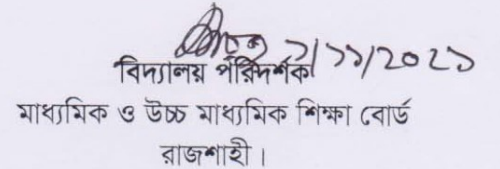 ১/১১/2০২১
বিদ্যালয় পরিদর্শক
মাধ্যমিক ও উচ্চ মাধ্যমিক শিক্ষা বোর্ড
রাজশাহী।